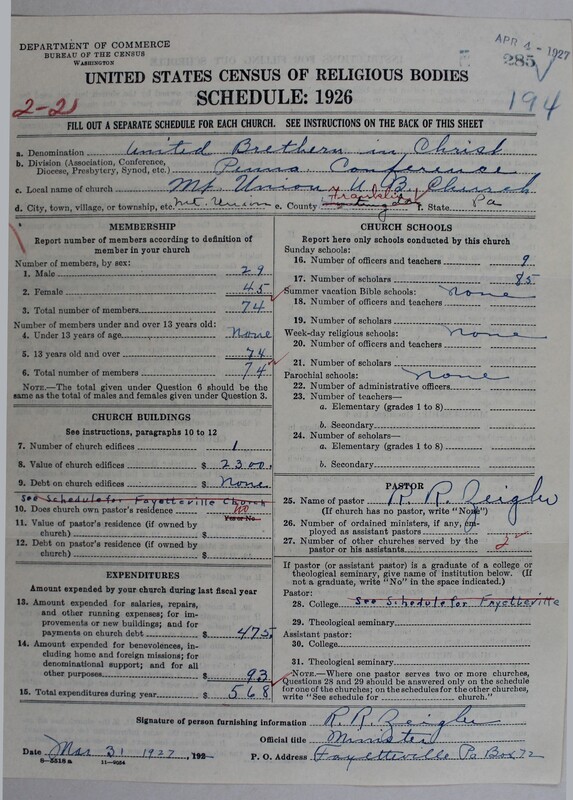 DEPARTMENT OF COMMERCE
BUREAU OF THE CENSUS
WASHINGTON
APR 4 - 1927
285
UNITED STATES CENSUS OF RELIGIOUS BODIES
SCHEDULE: 1926
2-21
194
FILL OUT A SEPARATE SCHEDULE FOR EACH CHURCH. SEE INSTRUCTIONS ON THE BACK OF THIS SHEET
a. Denomination United Brethern in Christ
b. Division (Association, Conference, Diocese, Presbytery, Synod, etc.) Penna Conference
c. Local name of church Mt. Union U. B. Church
d. City, town, village, or township, etc. Mt. Union e. County Franklin f. State Pa
MEMBERSHIP
Report number of members according to definition of
member in your church
Number of members, by sex:
1. Male 29
2. Female 45
3. Total number of members 74
Number of members under and over 13 years old:
4. Under 13 years of age None
5. 13 years old and over 74
6. Total number of members 74
NOTE.—The total given under Question 6 should be
same as the total of males and females given under Question 3.
CHURCH BUILDINGS
See instructions, paragraphs 10 to 12
7. Number of church edifices 1
8. Value of church edifices $ 2300.
9. Debt on church edifices $ None
See Schedule for Fayetteville Church
10. Does church own pastor's residence No
Yes or No
11. Value of pastor's residence (if owned by
church) $
12. Debt on pastor's residence (if owned by
church) $
EXPENDITURES
Amount expended by your church during last fiscal year
13. Amount expended for salaries, repairs,
and other running expenses; for im-
provements or new buildings; and for
payments on church debt $ 475.
14. Amount expended for benevolences, in-
cluding home and foreign missions; for
denominational support; and for all
other purposes $ 93
15. Total expenditures during year $ 568
CHURCH SCHOOLS
Report here only schools conducted by this church
Sunday schools:
16. Number of officers and teachers 9
17. Number of scholars 85
Summer vacation Bible schools: none
18. Number of officers and teachers
19. Number of scholars
Week-day religious schools: none
20. Number of officers and teachers
21. Number of scholars
Parochial schools: none
22. Number of administrative officers
23. Number of teachers—
a. Elementary (grades 1 to 8)
b. Secondary
24. Number of scholars—
a. Elementary (grades 1 to 8)
b. Secondary
PASTOR
25. Name of pastor R. R. Zeigler
(If church has no pastor, write "None")
26. Number of ordained ministers, if any, em-
ployed as assistant pastors
27. Number of other churches served by the
pastor or his assistants 2
If pastor (or assistant pastor) is a graduate of a college or
theological seminary, give name of institution below. (If
not a graduate, write "No" in the space indicated.)
Pastor:
28. College See Schedule for Fayetteville
29. Theological seminary
Assistant pastor:
30. College
31. Theological seminary
NOTE.—Where one pastor serves two or more churches,
Questions 28 and 29 should be answered only on the schedule
for one of the churches; on the schedules for the other churches,
write "See schedule for church."
Signature of person furnishing information R. R. Zeigler
Official title Minister
Date Mar 31 1927, 192
P. O. Address Fayetteville Pa Box 72
8—5518 a 11—9034